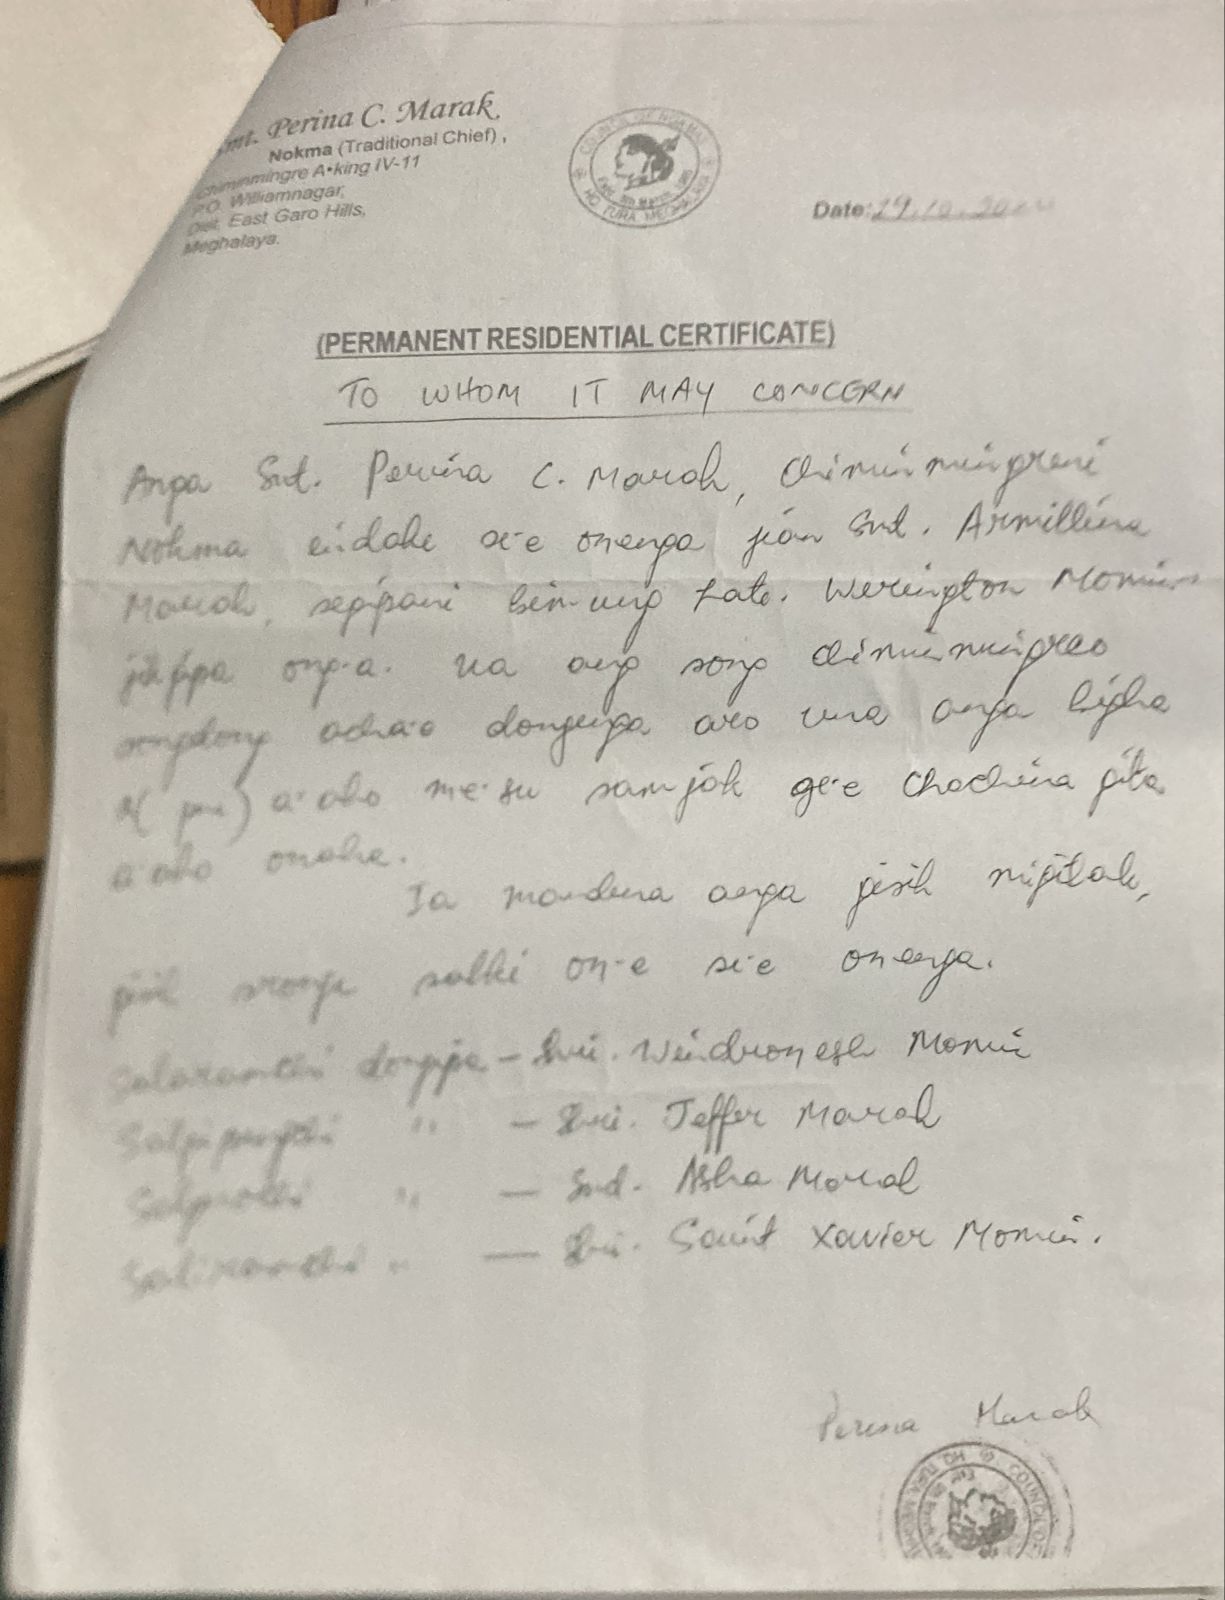 Smt. Perina C. Marak,
Nokma (Traditional Chief),
Chiminmingre A•king IV-11
P.O. Williamnagar,
Dist. East Garo Hills,
Meghalaya.
COUNCIL OF NOKMAS
HQ TURA MEGHALAYA
Date: 29.10.
(PERMANENT RESIDENTIAL CERTIFICATE)
TO WHOM IT MAY CONCERN
Anga Smt. Perina C. Marak, Chiminmingreni
Nokma indake se·e onenga jean Smt. Armillina
Marak, segipani bimung Late. Werington Momin
jikgipa ong·a. Ua ang song Chiminmingreo
songdong acha·o dongenga aro una anga bigha
a·ako me·su samjok ge·e chachina gita
a·ako onaha.
Ia mandena anga
on·e se·e onenga.
dongipa – Sri. Windronesh Momin
" – Sri. Jeffer Marak
" – Smt. Asha Marak
" – Sri. Saint Xavier Momin.
Perina Marak
COUNCIL OF
HQ TURA